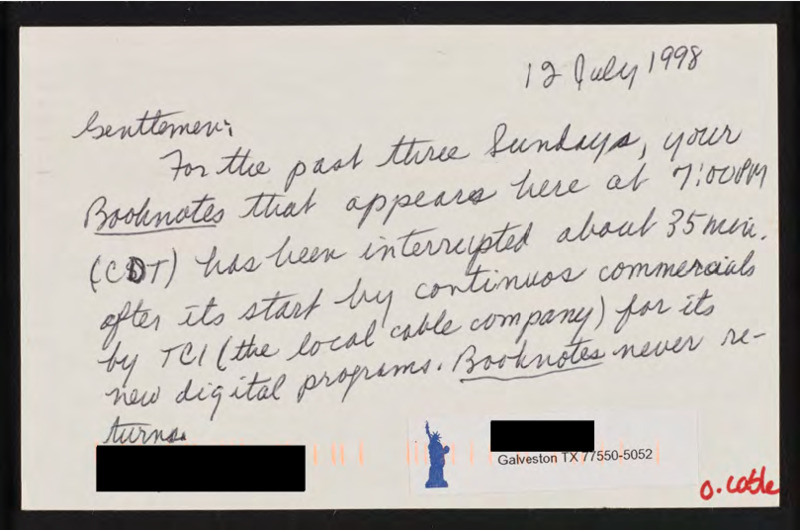 12 July 1998
Gentlemen:
For the past three Sundays, your
Booknotes that appears here at 7:00PM
(CDT) has been interrupted about 35 min.
after its start by continuos commercials
by TCI (the local cable company) for its
new digital programs. Booknotes never re-
turns.
Galveston TX 77550-5052
o. cable